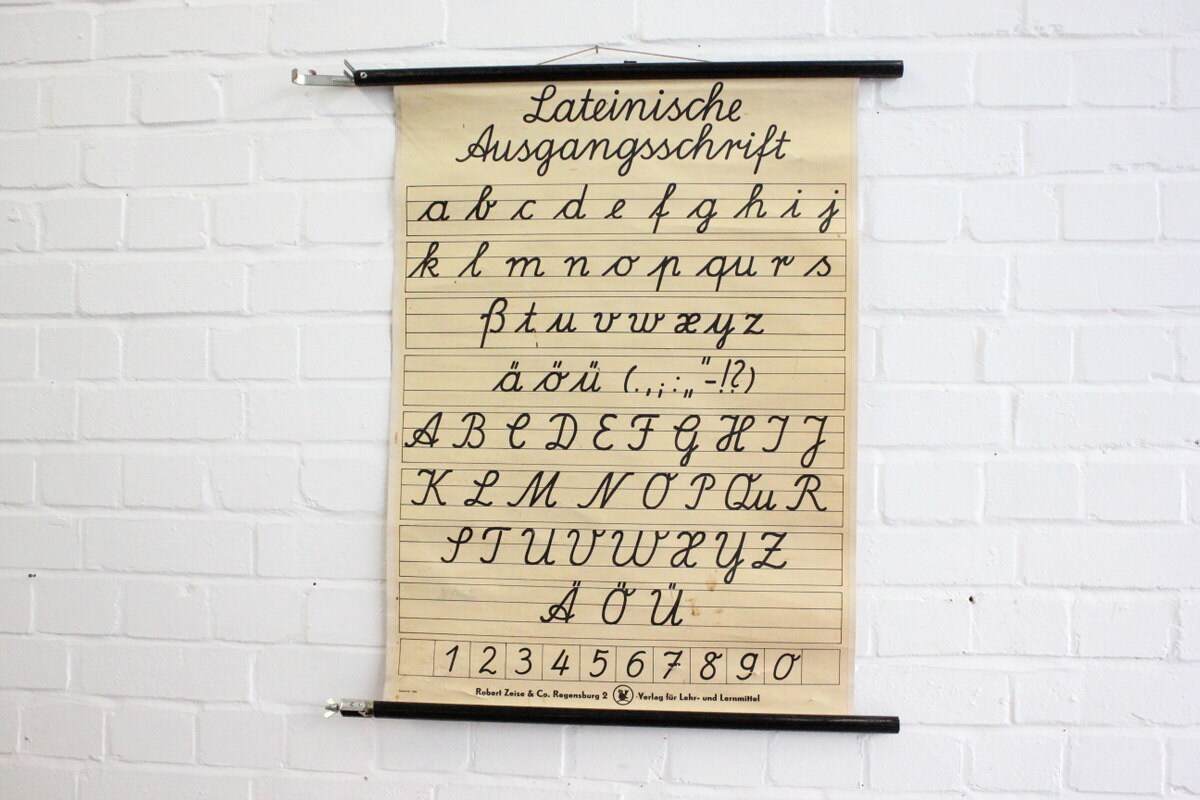 Lateinische
Ausgangsschrift
a b c d e f g h i j
k l m n o p qu r s
ß t u v w x y z
ä ö ü (.,;:„"-!?)
A B C D E F G H I J
K L M N O P Qu R
S T U V W X Y Z
Ä Ö Ü
1 2 3 4 5 6 7 8 9 0
Robert Zeise & Co. Regensburg 2 Verlag für Lehr- und Lernmittel